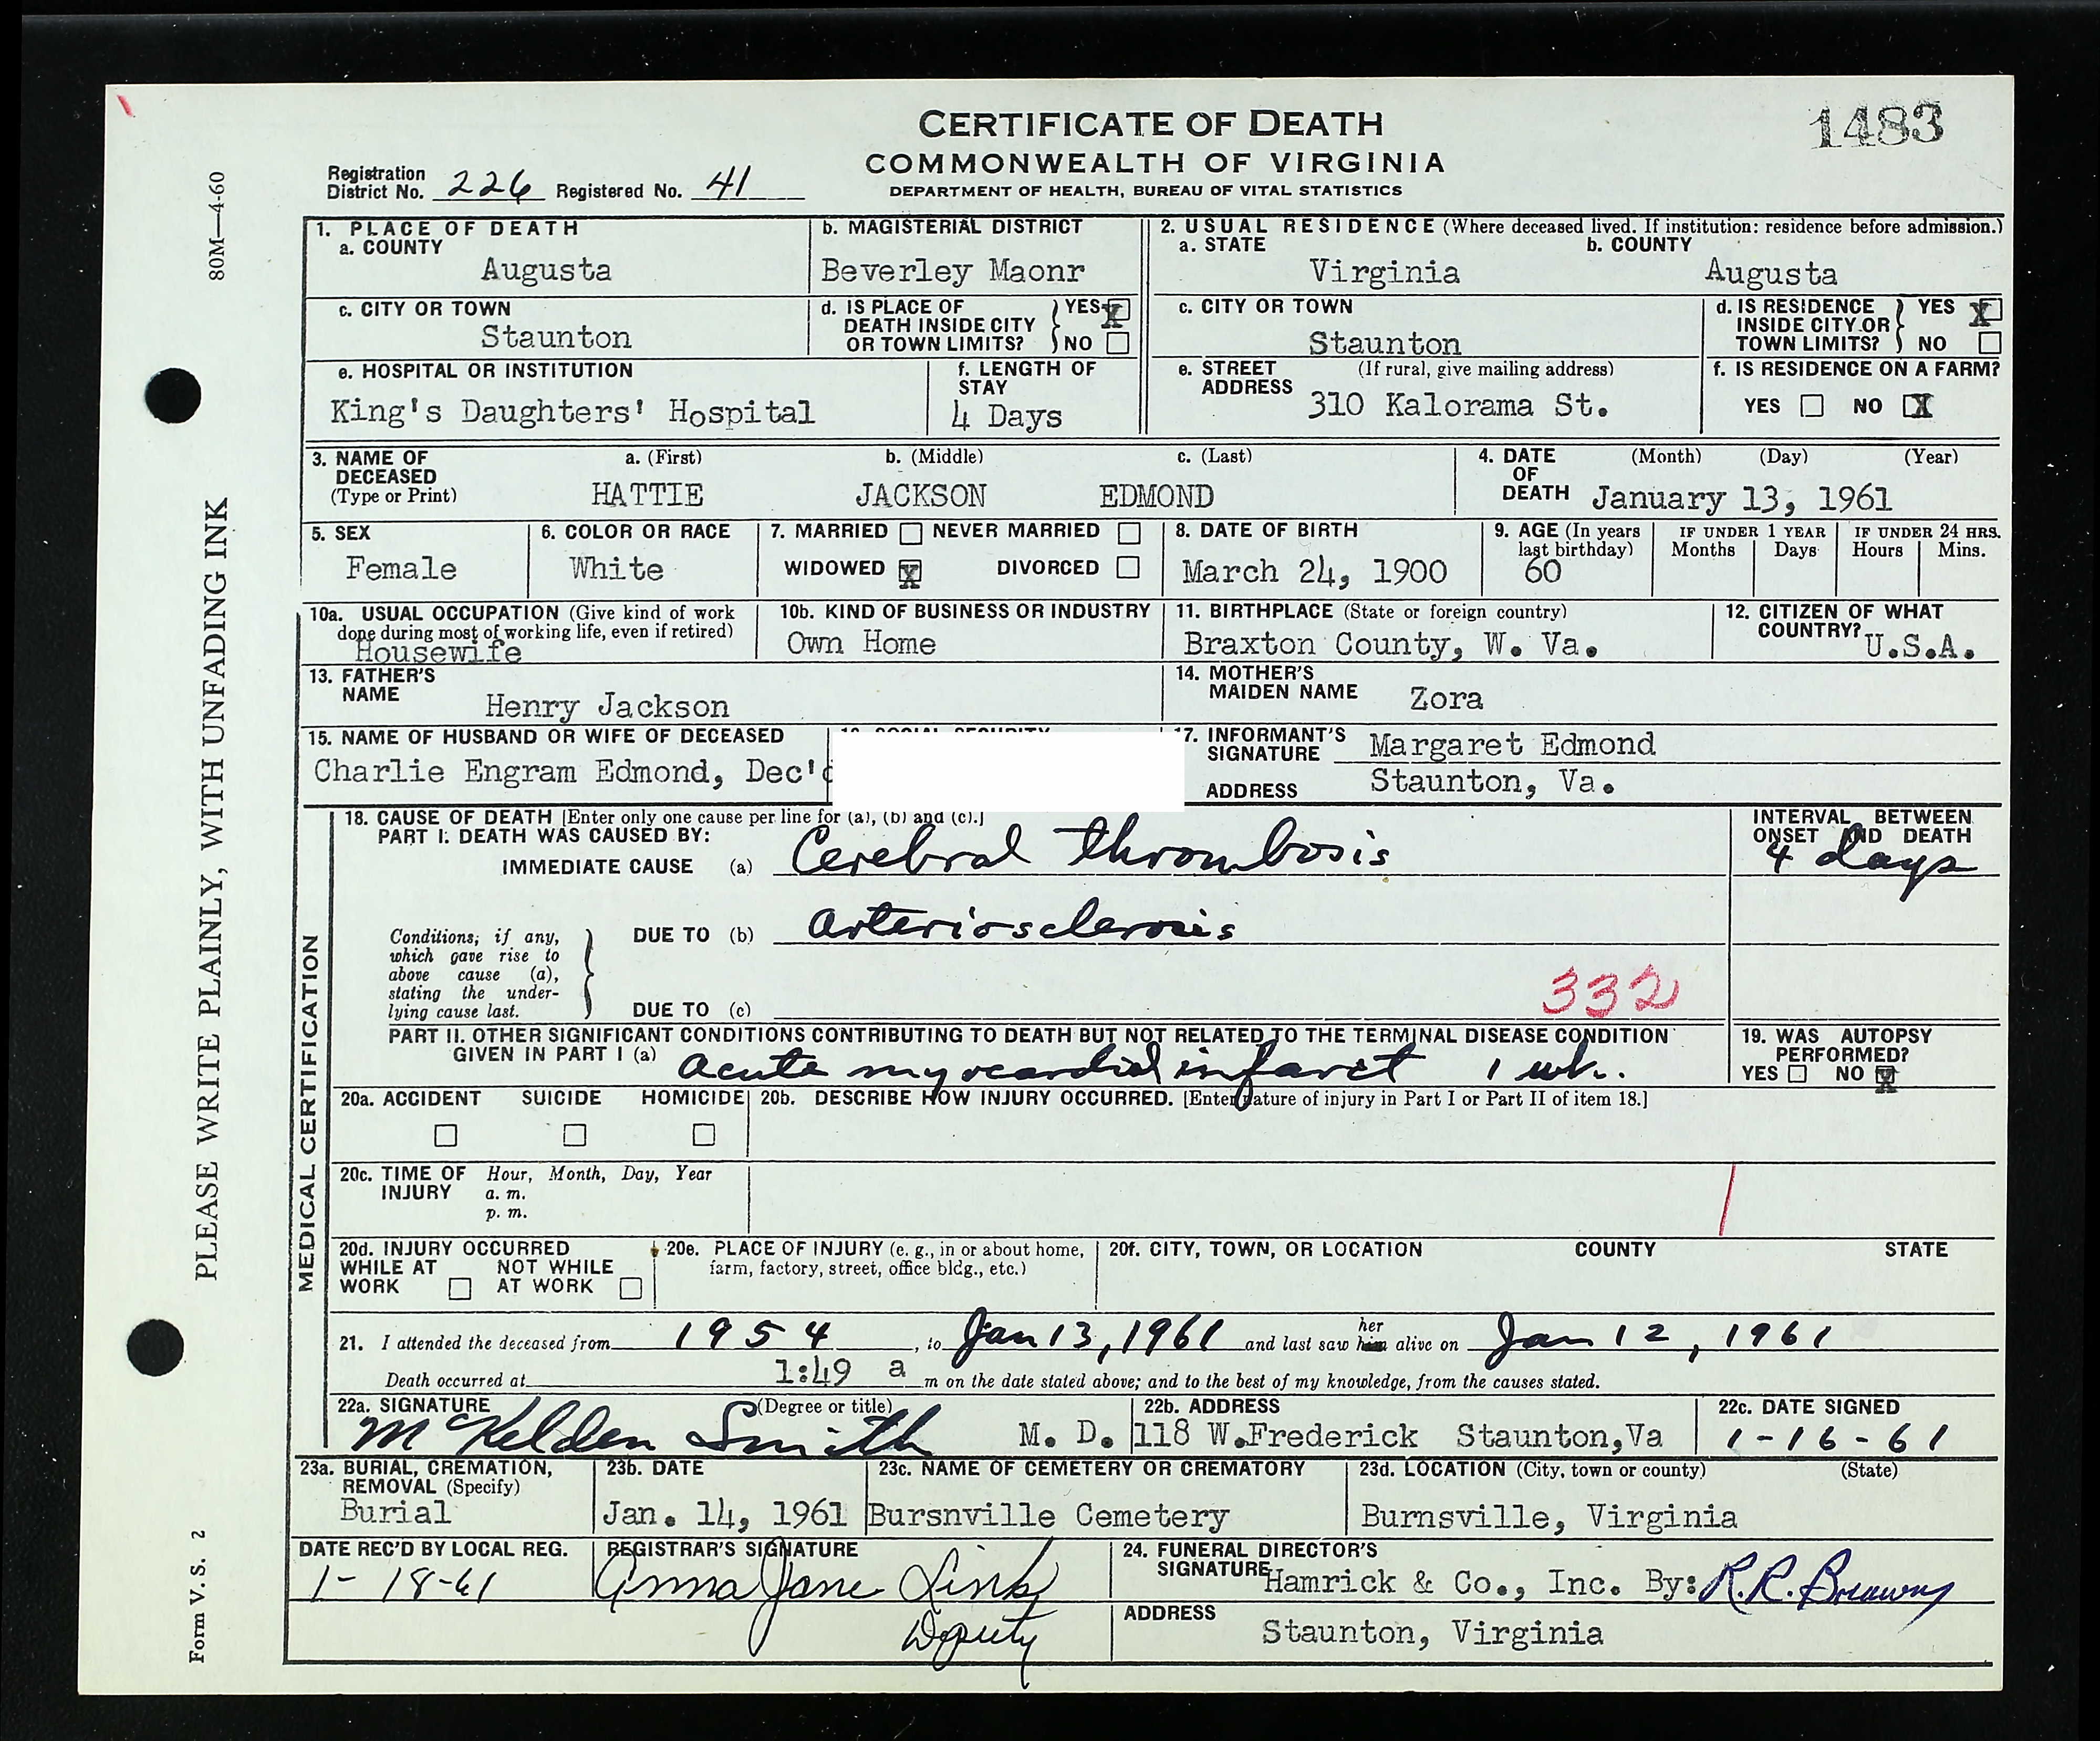 CERTIFICATE OF DEATH
1483
COMMONWEALTH OF VIRGINIA
DEPARTMENT OF HEALTH, BUREAU OF VITAL STATISTICS
Registration District No. 226 Registered No. 41
80M—4-60
PLEASE WRITE PLAINLY, WITH UNFADING INK
Form V. S. 2
1. PLACE OF DEATH
a. COUNTY
Augusta
b. MAGISTERIAL DISTRICT
Beverley Maonr
2. USUAL RESIDENCE (Where deceased lived. If institution: residence before admission.)
a. STATE
Virginia
b. COUNTY
Augusta
c. CITY OR TOWN
Staunton
d. IS PLACE OF DEATH INSIDE CITY OR TOWN LIMITS? YES X NO
c. CITY OR TOWN
Staunton
d. IS RESIDENCE INSIDE CITY OR TOWN LIMITS? YES X NO
e. HOSPITAL OR INSTITUTION
King's Daughters' Hospital
f. LENGTH OF STAY
4 Days
e. STREET ADDRESS (If rural, give mailing address)
310 Kalorama St.
f. IS RESIDENCE ON A FARM?
YES NO X
3. NAME OF DECEASED (Type or Print)
a. (First) b. (Middle) c. (Last)
HATTIE JACKSON EDMOND
4. DATE OF DEATH (Month) (Day) (Year)
January 13, 1961
5. SEX
Female
6. COLOR OR RACE
White
7. MARRIED NEVER MARRIED
WIDOWED X DIVORCED
8. DATE OF BIRTH
March 24, 1900
9. AGE (In years last birthday)
60
IF UNDER 1 YEAR Months Days
IF UNDER 24 HRS. Hours Mins.
10a. USUAL OCCUPATION (Give kind of work done during most of working life, even if retired)
Housewife
10b. KIND OF BUSINESS OR INDUSTRY
Own Home
11. BIRTHPLACE (State or foreign country)
Braxton County, W. Va.
12. CITIZEN OF WHAT COUNTRY?
U.S.A.
13. FATHER'S NAME
Henry Jackson
14. MOTHER'S MAIDEN NAME
Zora
15. NAME OF HUSBAND OR WIFE OF DECEASED
Charlie Engram Edmond, Dec'd
17. INFORMANT'S SIGNATURE Margaret Edmond
ADDRESS Staunton, Va.
MEDICAL CERTIFICATION
18. CAUSE OF DEATH [Enter only one cause per line for (a), (b) and (c).]
PART I. DEATH WAS CAUSED BY:
IMMEDIATE CAUSE (a) Cerebral thrombosis
INTERVAL BETWEEN ONSET AND DEATH
4 days
Conditions, if any, which gave rise to above cause (a), stating the underlying cause last.
DUE TO (b) arteriosclerosis
DUE TO (c)
332
PART II. OTHER SIGNIFICANT CONDITIONS CONTRIBUTING TO DEATH BUT NOT RELATED TO THE TERMINAL DISEASE CONDITION
GIVEN IN PART I (a) acute myocardial infarct 1 wk.
19. WAS AUTOPSY PERFORMED?
YES NO X
20a. ACCIDENT SUICIDE HOMICIDE
20b. DESCRIBE HOW INJURY OCCURRED. [Enter nature of injury in Part I or Part II of item 18.]
20c. TIME OF INJURY Hour, Month, Day, Year
a. m.
p. m.
20d. INJURY OCCURRED
WHILE AT WORK NOT WHILE AT WORK
20e. PLACE OF INJURY (e. g., in or about home, farm, factory, street, office bldg., etc.)
20f. CITY, TOWN, OR LOCATION COUNTY STATE
21. I attended the deceased from 1954, to Jan 13, 1961 and last saw her him alive on Jan 12, 1961
Death occurred at 1:49 a m on the date stated above; and to the best of my knowledge, from the causes stated.
22a. SIGNATURE (Degree or title)
McKelden Smith M. D.
22b. ADDRESS
118 W.Frederick Staunton,Va
22c. DATE SIGNED
1-16-61
23a. BURIAL, CREMATION, REMOVAL (Specify)
Burial
23b. DATE
Jan. 14, 1961
23c. NAME OF CEMETERY OR CREMATORY
Bursnville Cemetery
23d. LOCATION (City, town or county) (State)
Burnsville, Virginia
DATE REC'D BY LOCAL REG.
1-18-61
REGISTRAR'S SIGNATURE
Anna Jane Link
Deputy
24. FUNERAL DIRECTOR'S SIGNATURE
Hamrick & Co., Inc. By: R.R.
ADDRESS
Staunton, Virginia